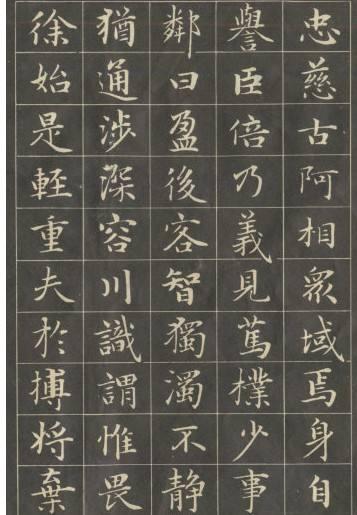 忠慈古阿相眾域焉身自
譽臣倍乃義見篤樸少事
鄰曰盈後客智獨濁不静
猶通涉深容川識謂惟畏
徐始是輕重夫於摶将棄